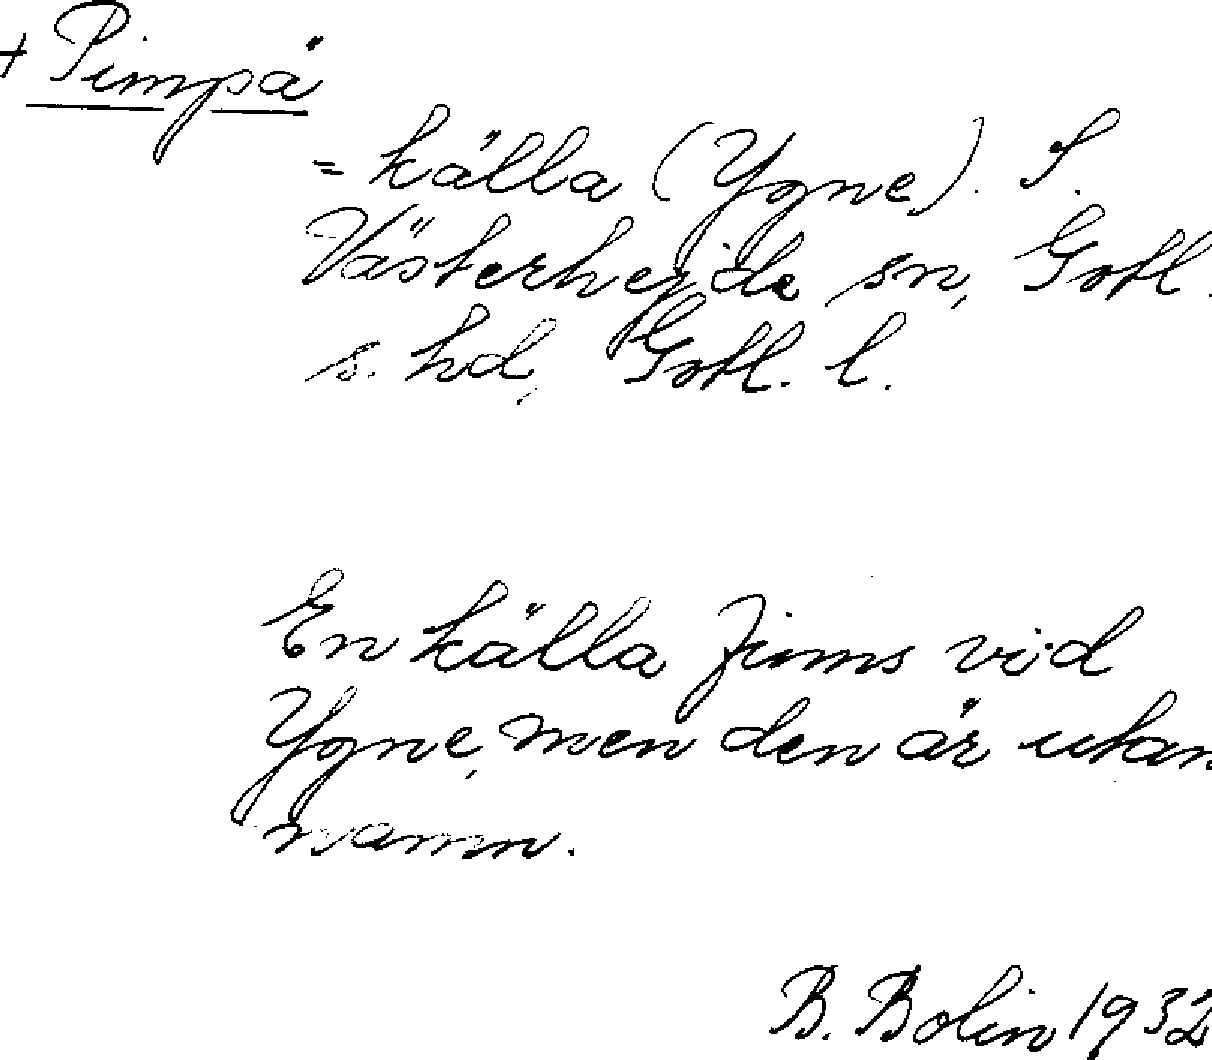 + Pimpä
= källa (Ygne). S.
Västerhejde sn, Gotl.
s. hd, Gotl. l.
En källa finns vid
Ygne, men den är utan
namn.
B. Bolin 1932